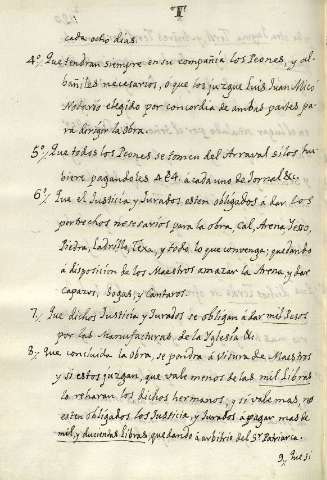 cada ocho dias.
4º. Que tendran siempre en su compañía los Peones, y al-
bañiles necesarios, o que los juzgue Luis Juan Micó
Notario elegido por concordia de ambas partes pa-
ra dirigir la obra.
5º. Que todos los Peones se tomen del Arraval si los hu-
biere pagandoles à cada uno de Jornal &c.
6º. Que el Justicia y Jurados esten obligados à dar los
pertrechos nesesarios para la obra, Cal, Arena Yeso,
Piedra, Ladrillo, Texa, y todo lo que convenga; quedando
à disposicion de los Maestros amazar la Arena, y dar
capazos, Sogas, y Cantaros.
7. Que dichos Justicia y Jurados se obligan à dar mil Pesos
por las Manufacturas, de la Yglesia &c.
8. Que concluida la obra, se pondra à Visura de Maestros
y si estos juzgan, que vale menos de las mil Libras
lo reharan los dichos hermanos, y si vale mas, no
esten obligados los Justicia, y Jurados à pagar mas de
mil, y ducientas Libras, quedando à arbitrio del Sr. Patriarca.
9. Que si